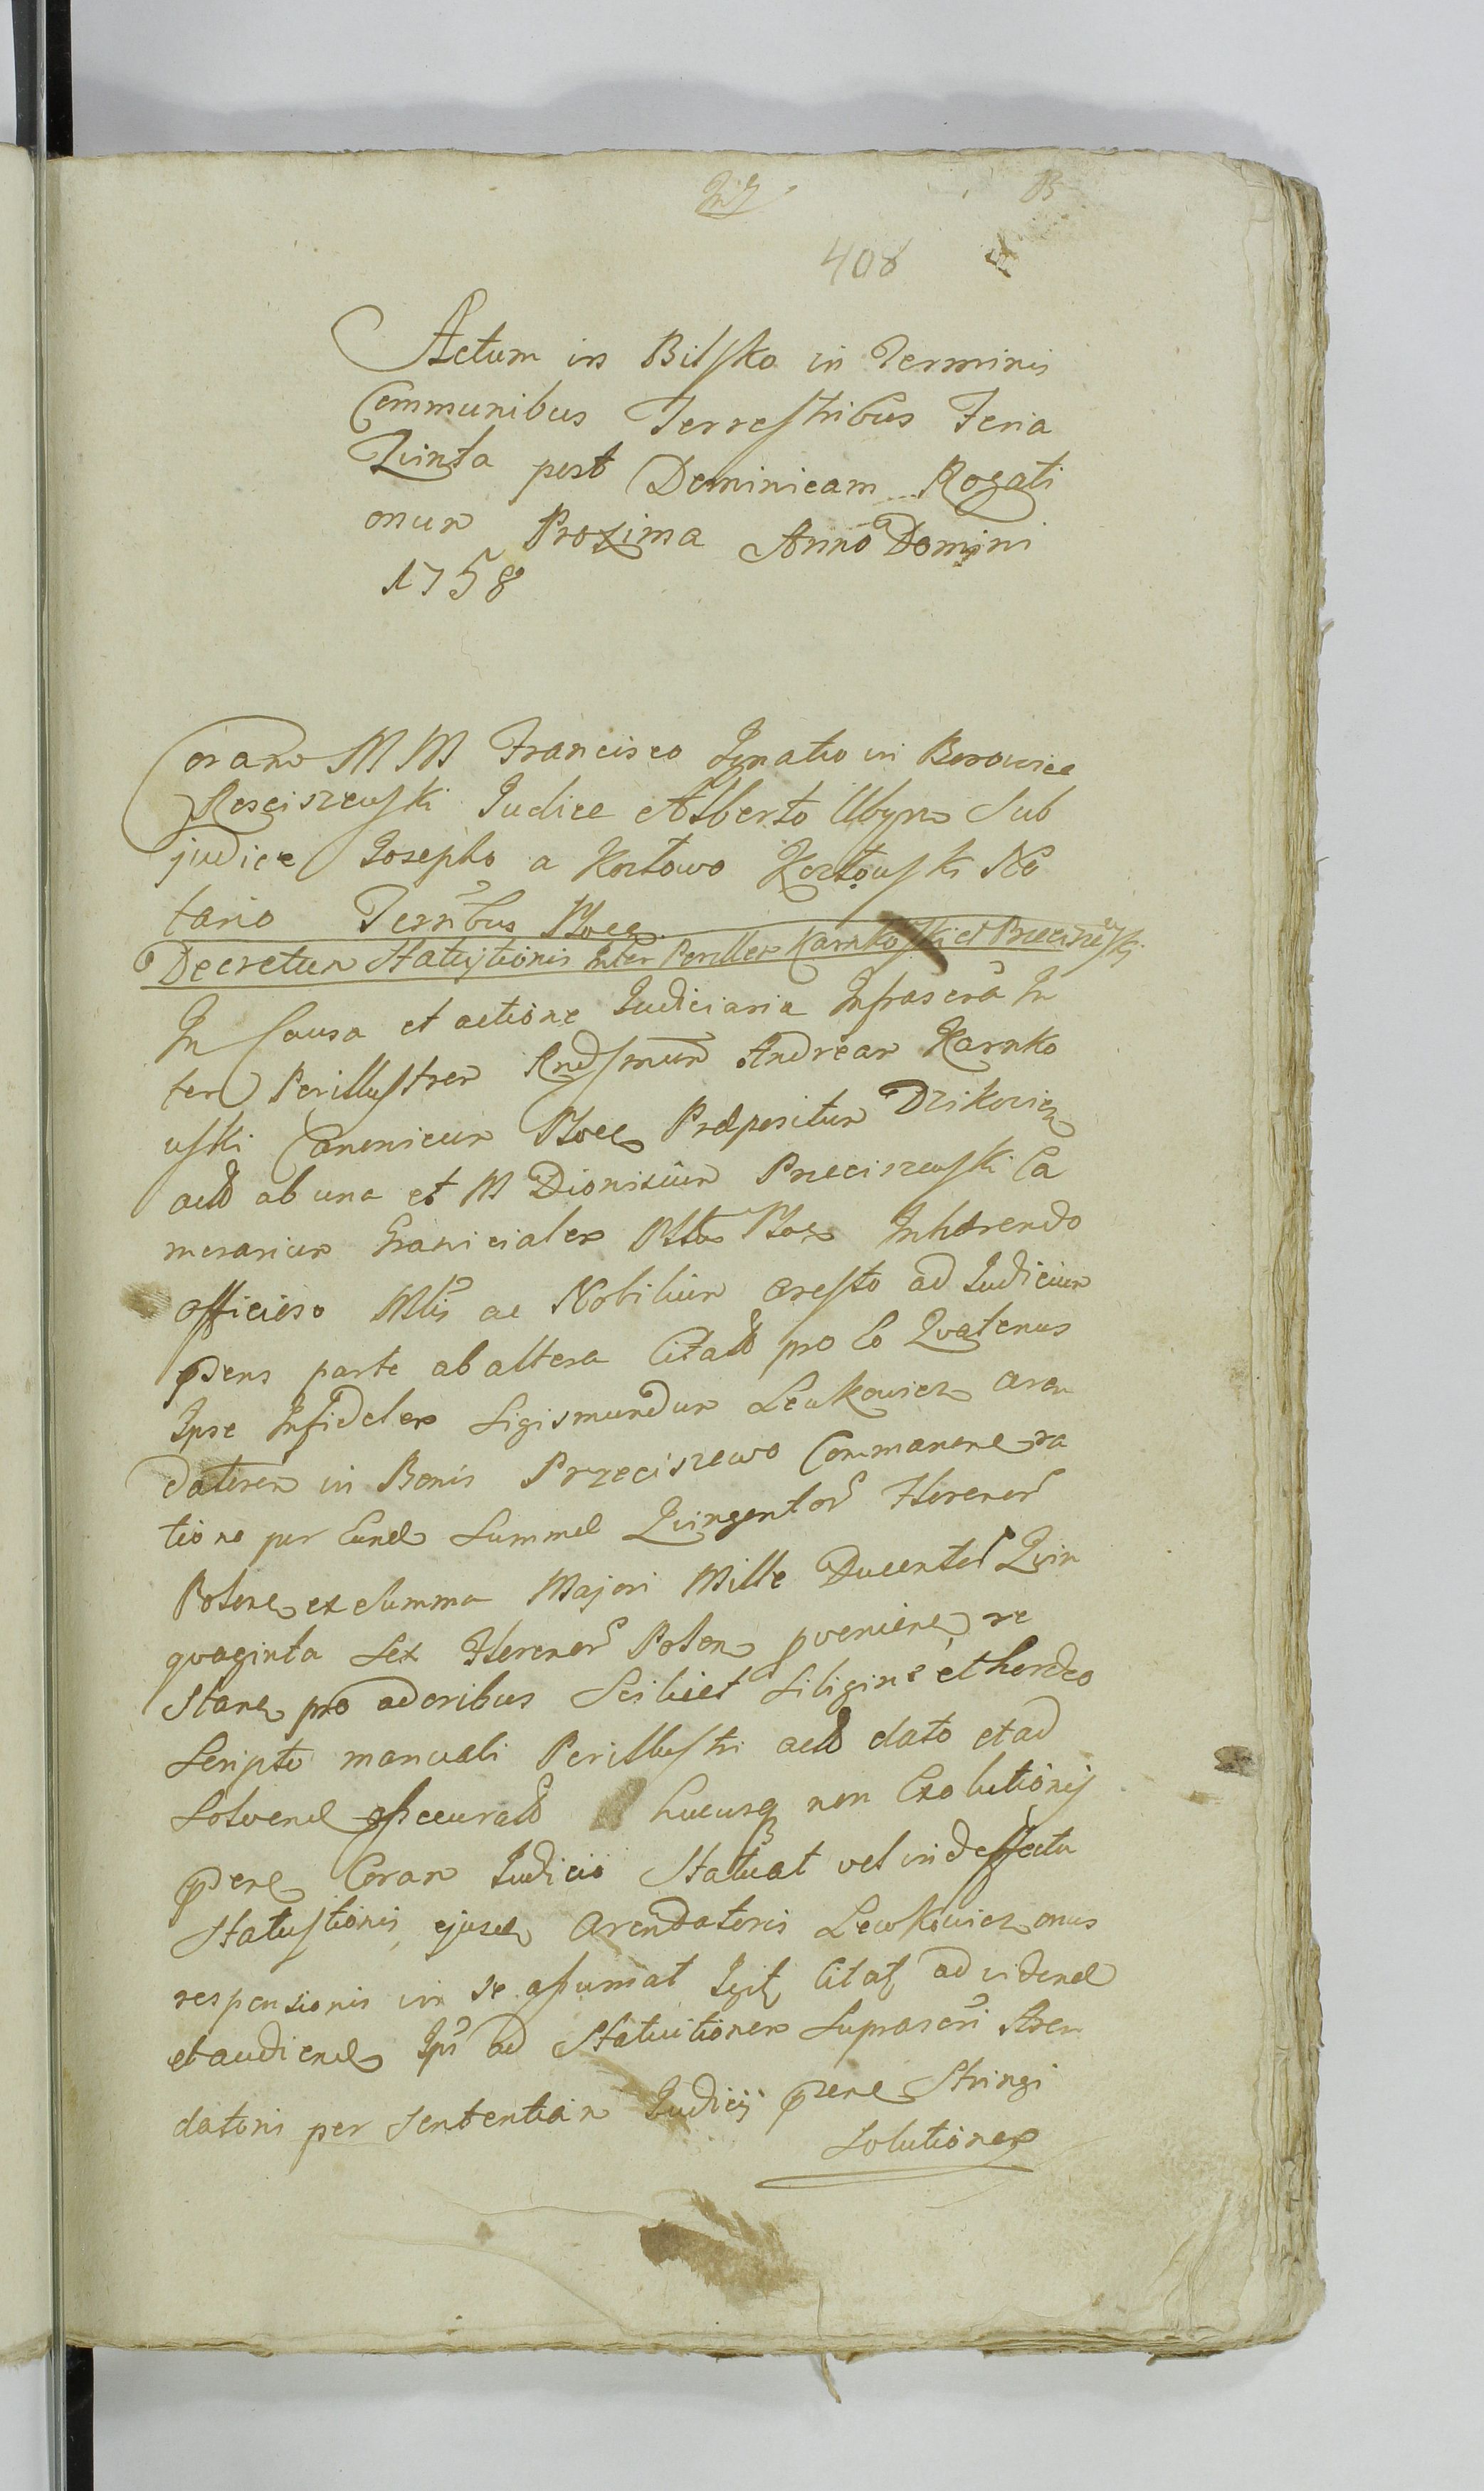 408
Actum in Bilsko in Terminis
Communibus Terrestribus Feria
Quinta post Dominicam Rogati
onum Proxima Anno Domini
1758
Coram MM Francisco Ignatio in Borowice
Rosciszewski Judice Alberto Ubysz Sub
judice Josepho a Kozłowo Kozłowski No
tario Terribus Ploc
Decretum Statuitionis Inter Perillrem Karnkowski et Przeciszewski
In Causa et actione Judiciaria Infrascra In
ter Perillustrem Rndsmum Andream Karnko
wski Canonicum Plocen Præpositum Dzikovien
actt ab una et M Dionisium Przeciszewski Ca
merarium Granicialem Plttus Plocen Inhærendo
officioso Mlis ac Nobilium aresto ad Judicium
pdens parte ab altera Citatt pro Eo Quatenus
Ipse Infidelem Sigismundum Lewkowicz aren
datorem in Bonis Przeciszewo Commanen ra
tione per Eund Summæ Quingentor Florenor
Polone ex Summa Majori Mille Ducentor Quin
quaginta Sex Florenor Polon pveniene re
stane pro adoribus Scilicet Siligine et hordeo
Scripto manuali Perillustri actt dato et ad
Solvend assecuratt hucusq non Exolutionis
pdene Coram Judicio Statuat vel in deffectu
Statuitionis ejusd arendatoris Lewkowicz onus
responsionis in se assumat Igit Citat ad vidend
et audiend Ips ad Statuitionem Suprascri Aren
datoris per Sententiam Judicij pzene Stringi
Solutionem